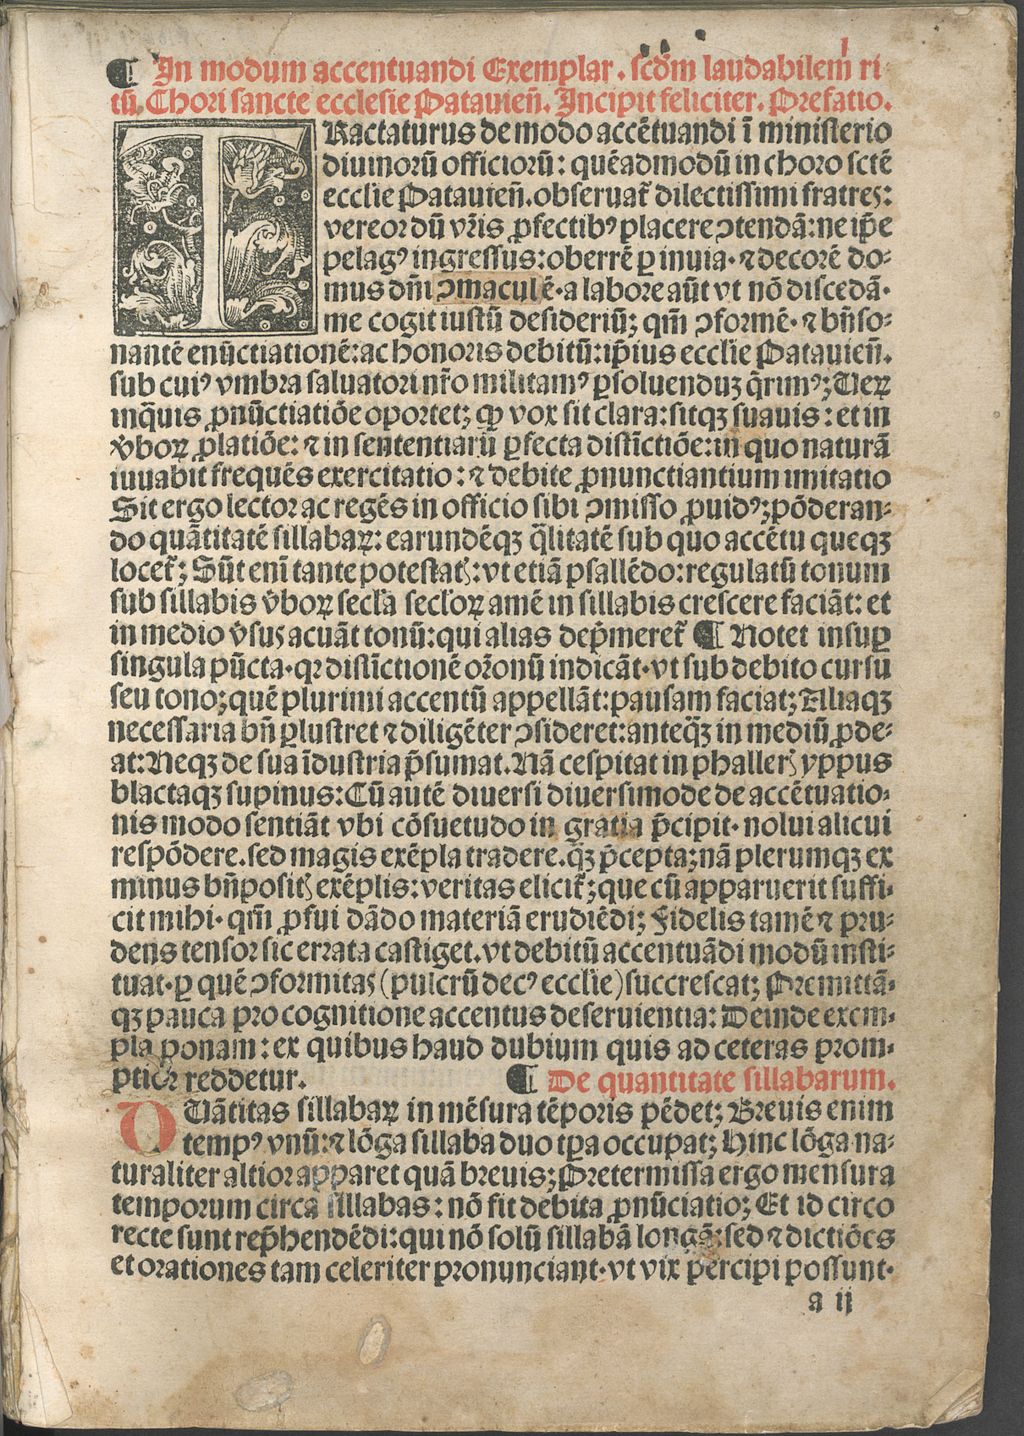 ¶ In modum accentuandi Exemplar. scd̄m laudabilem ri-
tū. Chori sancte ecclesie Patauieñ. Incipit feliciter. Prefatio.
TRactaturus de modo accētuandi ī ministerio
diuinorū officiorū: quēadmodū in choro sctē
ecclie Patauieñ. obseruat᷑ dilectissimi fratres:
vereor dū vr̄is ꝓfectibꝰ placere ↄtendā: ne ip̄e
pelagꝰ ingressus: oberrē ꝑ inuia· ⁊ decorē do-
mus dn̄i ↄmaculē· a labore aūt vt nō discedā·
me cogit iustū desideriū; qm̄ ↄformē· ⁊ bn̄so-
nantē enūctiationē: ac honoris debitū: ip̄ius ecclie Patauieñ.
sub cuiꝰ vmbra saluatori nr̄o militamꝰ ꝑsoluenduꝫ q̄rimꝰ; Veꝝ
inq̄uis ꝓnūctiatiōe oportet; ꝙ vox sit clara: sitqꝫ suauis: et in
v̄boꝝ ꝓlatiōe: ⁊ in sententiarū ꝑfecta distīctiōe: in quo naturā
iuuabit frequēs exercitatio: ⁊ debite ꝓnunctiantium imitatio
Sit ergo lector ac regēs in officio sibi ↄmisso ꝓuidꝰ; pōderan-
do quātitatē sillabaꝝ: earundēqꝫ q̄litatē sub quo accētu queqꝫ
locet᷑; Sūt enī tante potestatꝭ: vt etiā psallēdo: regulatū tonum
sub sillabis v̄boꝝ secl̄a secl̄oꝝ amē in sillabis crescere faciāt: et
in medio v̄sus acuāt tonū: qui alias dep̄meret᷑ ¶ Notet insuꝑ
singula pūcta· qꝛ distīctionē or̄onū indicāt· vt sub debito cursu
seu tono; quē plurimi accentū appellāt: pausam faciat; Aliaqꝫ
necessaria bn̄ ꝑlustret ⁊ diligēter ↄsideret: anteq̄ꝫ in mediū ꝓde-
at: Neqꝫ de sua īdustria p̄sumat. Nā cespitat in phallerꝭ yppus
blactaqꝫ supinus: Cū autē diuersi diuersimode de accētuatio-
nis modo sentiāt vbi cōsuetudo in gratia p̄cipit· nolui alicui
respōdere. sed magis exēpla tradere. q̄ꝫ p̄cepta; nā plerumqꝫ ex
minus bn̄ positꝭ exēplis: veritas elicit᷑; que cū apparuerit suffi-
cit mihi· qm̄ ꝓfui dādo materiā erudiēdi; Fidelis tamē ⁊ pru-
dens tensor sic errata castiget. vt debitū accentuādi modū insti-
tuat· ꝑ quē ↄformitas (pulcrū decꝰ ecclie) succrescat; Premittā-
qꝫ pauca pro cognitione accentus deseruientia: Deinde exem-
pla ponam: ex quibus haud dubium quis ad ceteras prom-
ptior reddetur. ¶ De quantitate sillabarum.
QUātitas sillabaꝝ in mēsura tēporis pēdet; Breuis enim
tempꝰ vnū: ⁊ lōga sillaba duo tꝑa occupat; Hinc lōga na-
turaliter altior apparet quā breuis; Pretermissa ergo mensura
temporum circa sillabas: nō fit debita ꝓnūciatio; Et id circo
recte sunt rep̄hendēdi: qui nō solū sillabā longā: sed ⁊ dictiōes
et orationes tam celeriter pronunciant· vt vix percipi possunt·
a ij